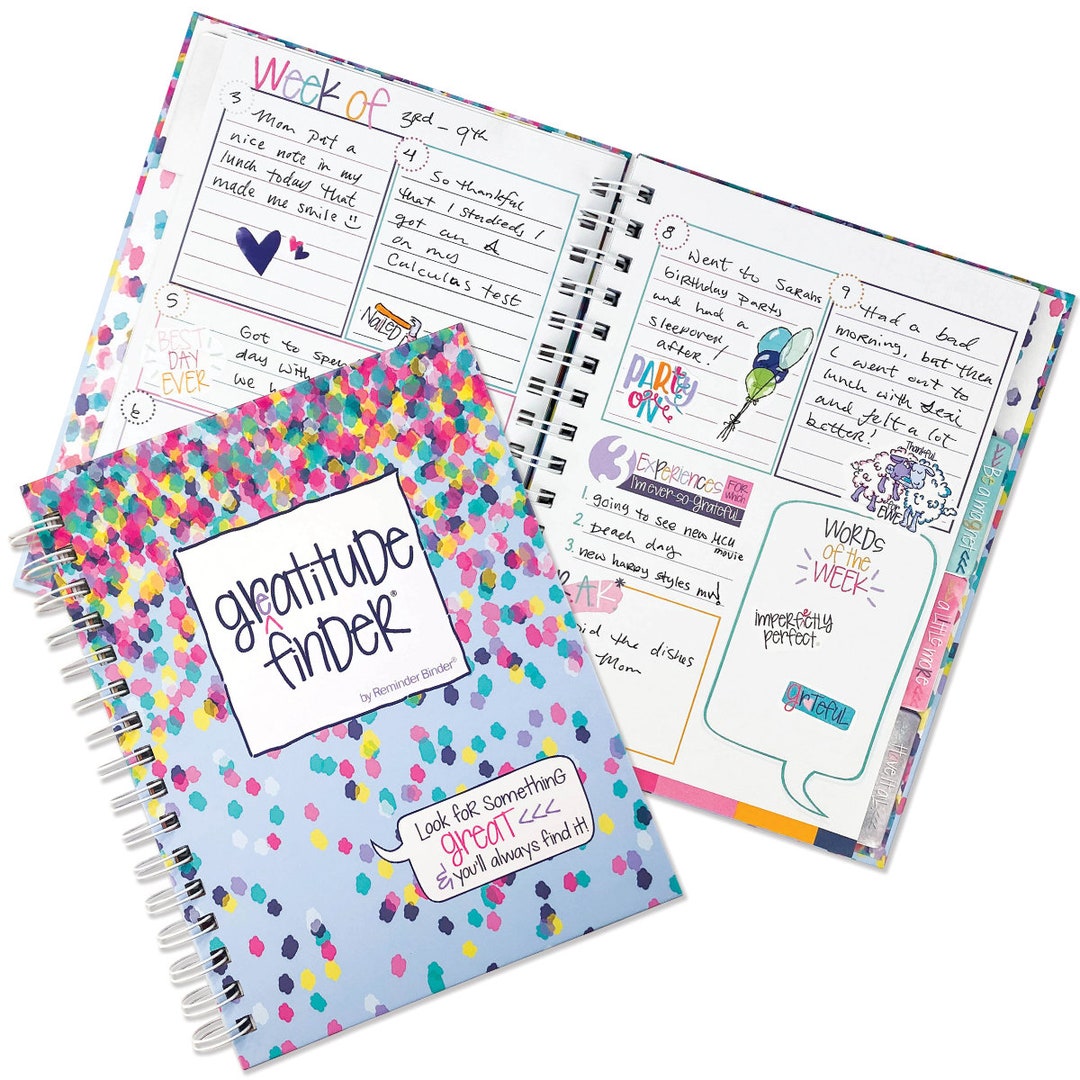 Week of
3rd - 9th
3
Mom put a
nice note in my
lunch today that
made me smile
4
So thankful
that I studied &
got an A
on my
Calculus test
NAILED
5
BEST
DAY
EVER
Got to
day with
we
6
8
Went to Sarahs
birthday party
and had a
sleepover
after!
PARTY
ON
9
Had a bad
morning, but then
I went out to
lunch with Lexi
and felt a lot
better!
Thankful
for
EWE
3 EXPERIENCES FOR which
I'm ever-so-grateful
1. going to see new MCU
movie
2. beach day
3. new harry styles mv!
R.A.K*
the dishes
Mom
WORDS
of the
WEEK
imperfectly
perfect
grateful
Be a magnet
a little more
#oveital
greatitude
finder®
by Reminder Binder®
Look for something
great <<<
& you'll always find it!